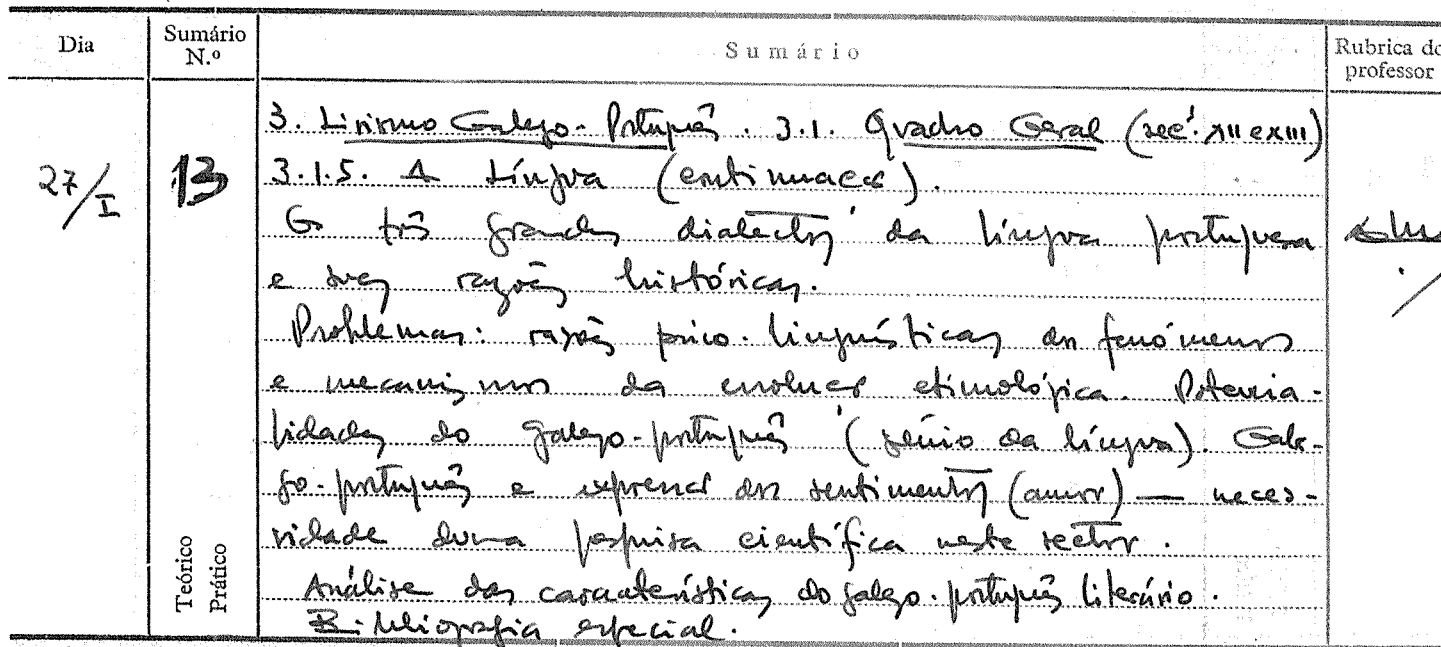 Dia
Sumário N.º
Sumário
Rubrica do professor
3. Lirismo Galego-Português. 3.1. Quadro Geral (séc. XII e XIII)
27/I
13
3.1.5. A Língua (continuação).
Os três grandes dialectos da língua portuguesa
e suas razões históricas.
Problemas: razões psico-linguísticas dos fenómenos
e mecanismos da evolução etimológica. Potencia-
lidades do galego-português (génio da língua). Gale-
go-português e expressão dos sentimentos (amor) — neces-
sidade duma pesquisa científica neste sector.
Análise das características do galego-português literário.
Bibliografia especial.
Teórico
Prático